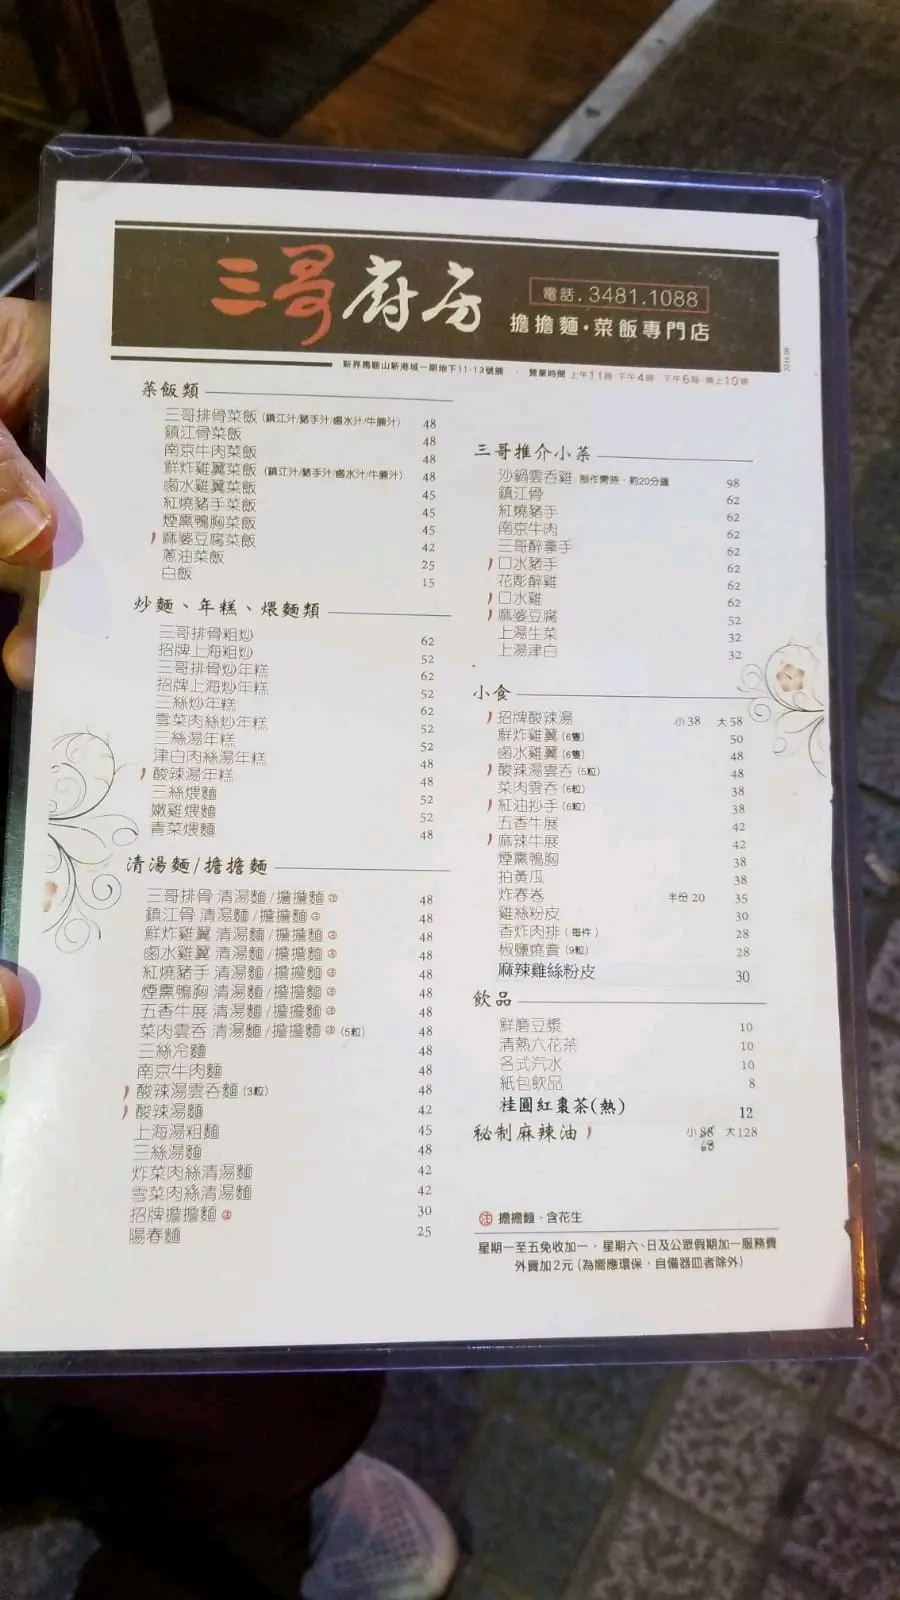 三哥廚房
電話.3481.1088
擔擔麵·菜飯專門店
新界馬鞍山新港城一期地下11-13號舖 · 營業時間 上午11時-下午4時 下午6時-晚上10時
菜飯類
三哥排骨菜飯 (鎮江汁/豬手汁/鹵水汁/牛腩汁) 48
鎮江骨菜飯 48
南京牛肉菜飯 48
鮮炸雞翼菜飯 (鎮江汁/豬手汁/鹵水汁/牛腩汁) 48
鹵水雞翼菜飯 45
紅燒豬手菜飯 45
煙熏鴨胸菜飯 45
麻婆豆腐菜飯 42
蔥油菜飯 25
白飯 15
炒麵、年糕、煨麵類
三哥排骨粗炒 62
招牌上海粗炒 52
三哥排骨炒年糕 62
招牌上海炒年糕 52
三絲炒年糕 62
雪菜肉絲炒年糕 52
三絲湯年糕 52
津白肉絲湯年糕 48
酸辣湯年糕 48
三絲煨麵 52
嫩雞煨麵 52
青菜煨麵 48
清湯麵/擔擔麵
三哥排骨 清湯麵/擔擔麵 注 48
鎮江骨 清湯麵/擔擔麵 注 48
鮮炸雞翼 清湯麵/擔擔麵 注 48
鹵水雞翼 清湯麵/擔擔麵 注 48
紅燒豬手 清湯麵/擔擔麵 注 48
煙熏鴨胸 清湯麵/擔擔麵 注 48
五香牛展 清湯麵/擔擔麵 注 48
菜肉雲吞 清湯麵/擔擔麵 注 (5粒) 48
三絲冷麵 48
南京牛肉麵 48
酸辣湯雲吞麵 (3粒) 48
酸辣湯麵 42
上海湯粗麵 45
三絲湯麵 48
炸菜肉絲清湯麵 42
雪菜肉絲清湯麵 42
招牌擔擔麵 注 30
陽春麵 25
三哥推介小菜
沙鍋雲吞雞 制作需時，約20分鐘 98
鎮江骨 62
紅燒豬手 62
南京牛肉 62
三哥醉拿手 62
口水豬手 62
花彫醉雞 62
口水雞 62
麻婆豆腐 52
上湯生菜 32
上湯津白 32
小食
招牌酸辣湯 小38 大58
鮮炸雞翼 (6隻) 50
鹵水雞翼 (6隻) 48
酸辣湯雲吞 (5粒) 48
菜肉雲吞 (6粒) 38
紅油抄手 (6粒) 38
五香牛展 42
麻辣牛展 42
煙熏鴨胸 38
拍黃瓜 38
炸春卷 半份 20 35
雞絲粉皮 30
香炸肉排 (每件) 28
椒鹽燒賣 (9粒) 28
麻辣雞絲粉皮 30
飲品
鮮磨豆漿 10
清熱六花茶 10
各式汽水 10
紙包飲品 8
桂圓紅棗茶(熱) 12
秘制麻辣油 小88 大128
68
注 擔擔麵 - 含花生
星期一至五免收加一，星期六、日及公眾假期加一服務費
外賣加2元 (為響應環保，自備器皿者除外)